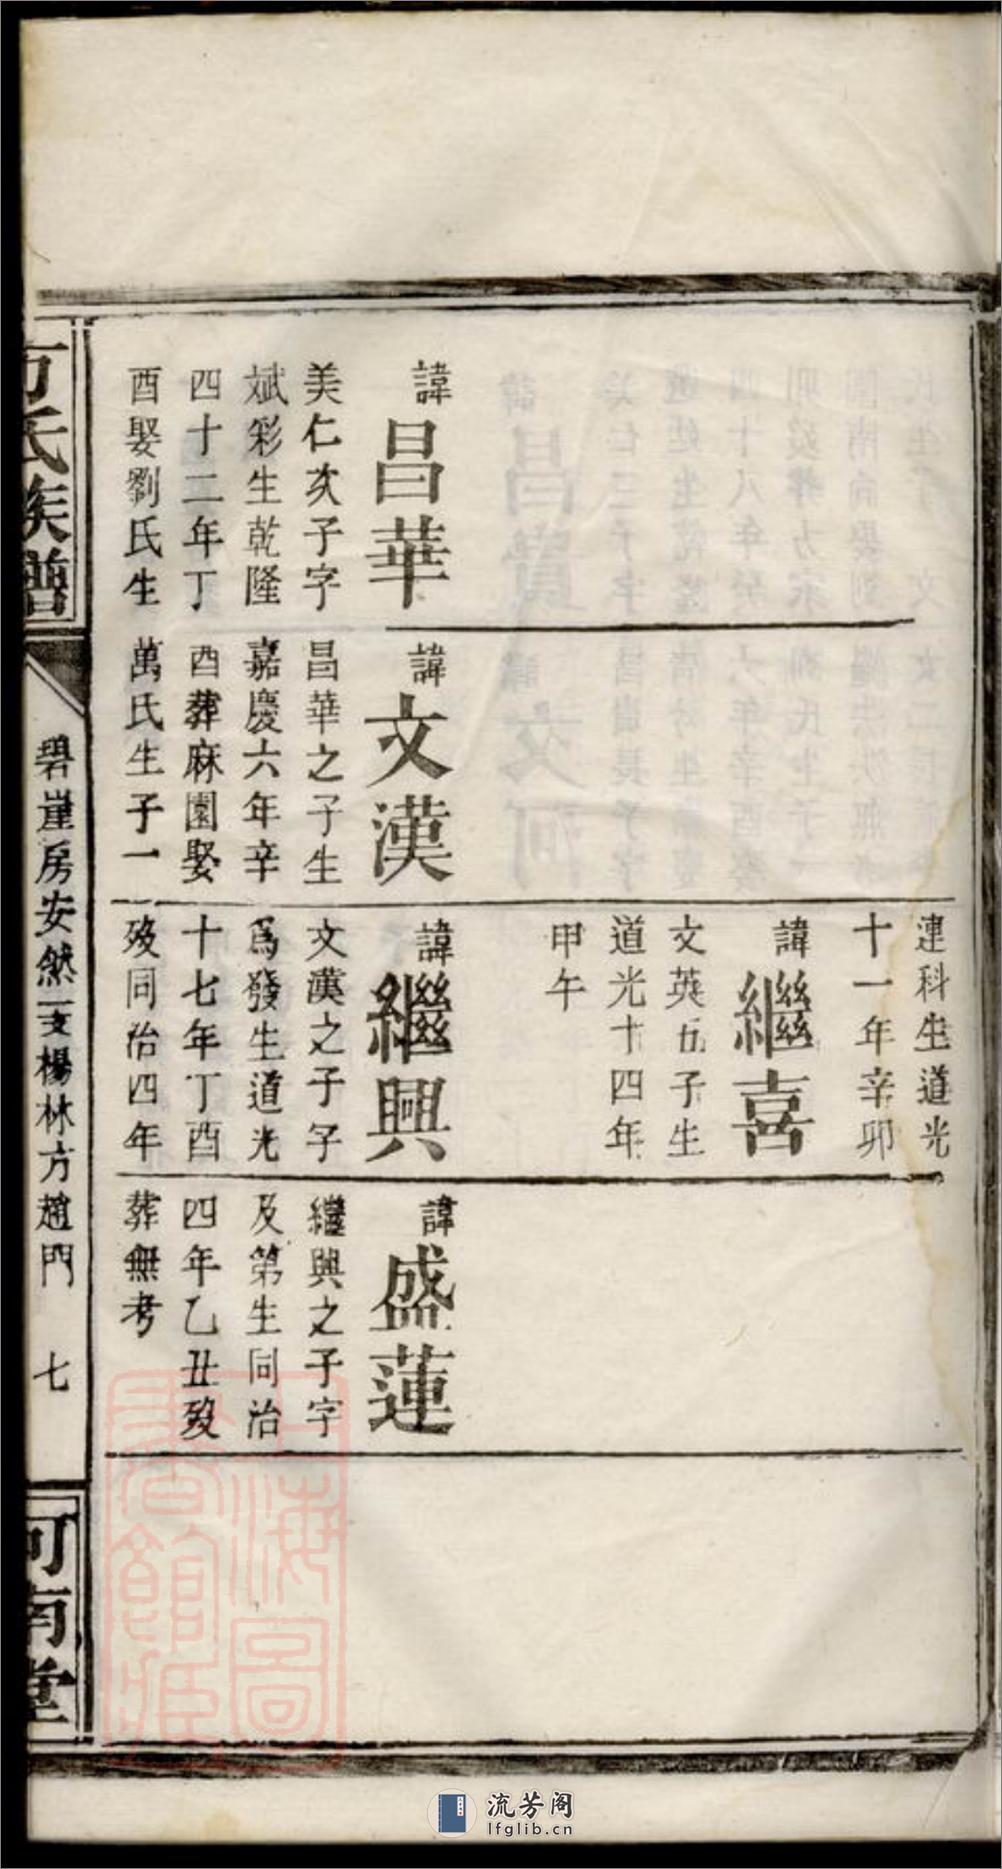 諱昌華
美仁次子字
斌彩生乾隆
四十二年丁
酉娶劉氏生
諱文漢
昌華之子生
嘉慶六年辛
酉葬麻園娶
萬氏生子一
連科生道光
十一年辛卯
諱繼喜
文英五子生
道光十四年
甲午
諱繼興
文漢之子字
爲發生道光
十七年丁酉
歿同治四年
諱盛蓮
繼興之子字
及第生同治
四年乙丑歿
葬無考
方氏族譜
碧崖房安然支楊林方趙門 七
河南堂
上海圖書館藏
流芳阁
lfglib.cn